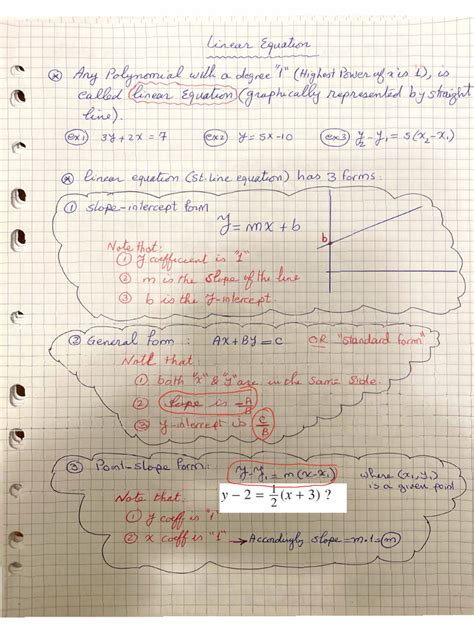 Linear Equation
⊛ Any Polynomial with a degree "1" (Highest Power of x is 1), is
called linear Equation (graphically represented by straight
line).
ex1 3y + 2x = 7 ex2 y = 5x - 10 ex3 y₂ - y₁ = 5(x₂ - x₁)
⊛ linear equation (St-line equation) has 3 forms:
① Slope-intercept form
y = mx + b
b
Note that:
① y coefficient is "1"
② m is the slope of the line
③ b is the y-intercept
② General form : Ax + By = C OR "standard form"
Note that:
① both "x" & "y" are in the same side
② Slope is -A/B
③ y-intercept is C/B
③ Point-slope form: y - y₁ = m(x - x₁) where (x₁, y₁)
is a given point
y − 2 = 1/2 (x + 3) ?
Note that:
① y coeff is "1"
② x coeff is "1" → Accordingly slope = m·1 = m